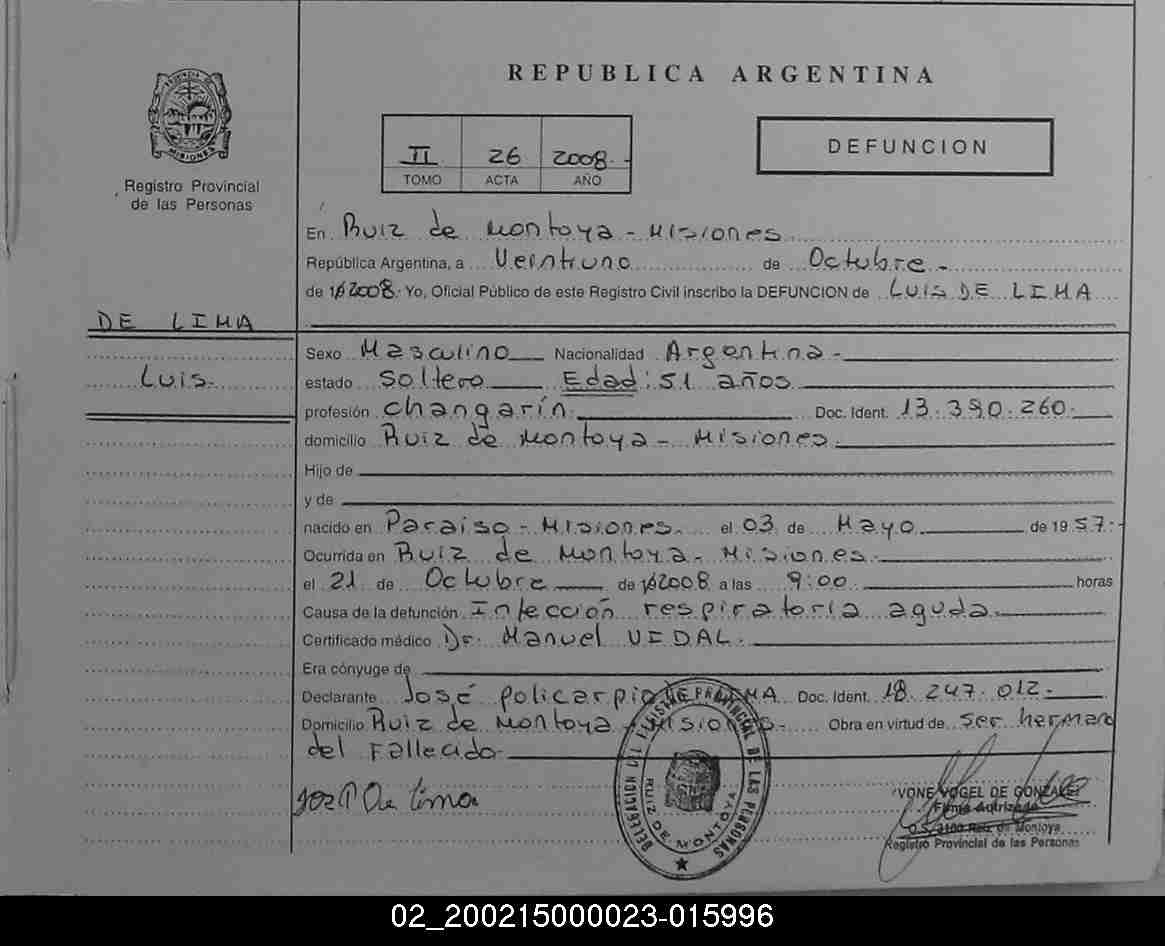 REPUBLICA ARGENTINA
PROVINCIA DE
MISIONES
Registro Provincial
de las Personas
II 26 2008.-
TOMO ACTA AÑO
DEFUNCION
En Ruiz de Montoya - Misiones
República Argentina, a Veintiuno de Octubre -
de 19 2008. Yo, Oficial Público de este Registro Civil inscribo la DEFUNCION de LUIS DE LIMA
DE LIMA
Luis.
Sexo Masculino Nacionalidad Argentina -
estado Soltero Edad: 51 años
profesión changarín. Doc. Ident. 13.390.260.
domicilio Ruiz de Montoya - Misiones.
Hijo de
y de
nacido en Paraiso - Misiones. el 03 de Mayo de 1957.-
Ocurrida en Ruiz de Montoya - Misiones.
el 21 de Octubre de 19 2008 a las 9:00 horas
Causa de la defunción Infección respiratoria aguda.
Certificado médico Dr. Manuel VIDAL.
Era cónyuge de
Declarante José policarpio DE LIMA Doc. Ident. 18.247.012.-
Domicilio Ruiz de Montoya - Misiones. Obra en virtud de ser hermano
del Fallecido.
José P De Lima
DELEGACION DEL REGISTRO PROVINCIAL DE LAS PERSONAS
RUIZ DE MONTOYA
IVONE VOGEL DE GONZALEZ
Firma Autrizada
O.S. 3100 Ruiz de Montoya
Registro Provincial de las Personas
02_200215000023-015996